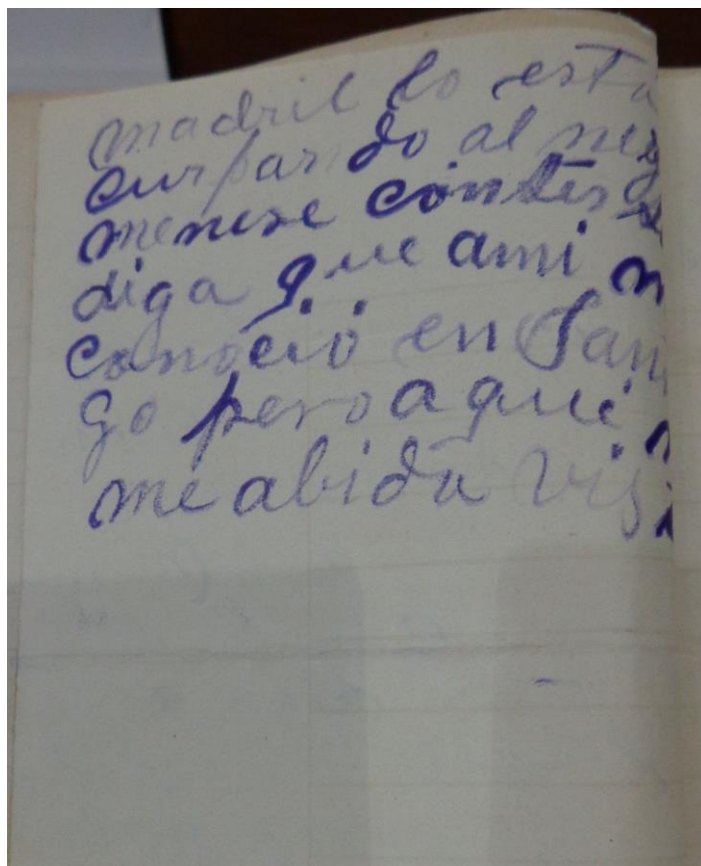 madril lo esta
curpando al neg
menese contes
diga que ami n
conoció en San
go pero aqui n
me abida vis